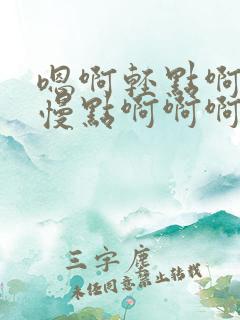 嗯啊轻點啊
慢點啊啊啊
三字塵
未任同意禁止转载